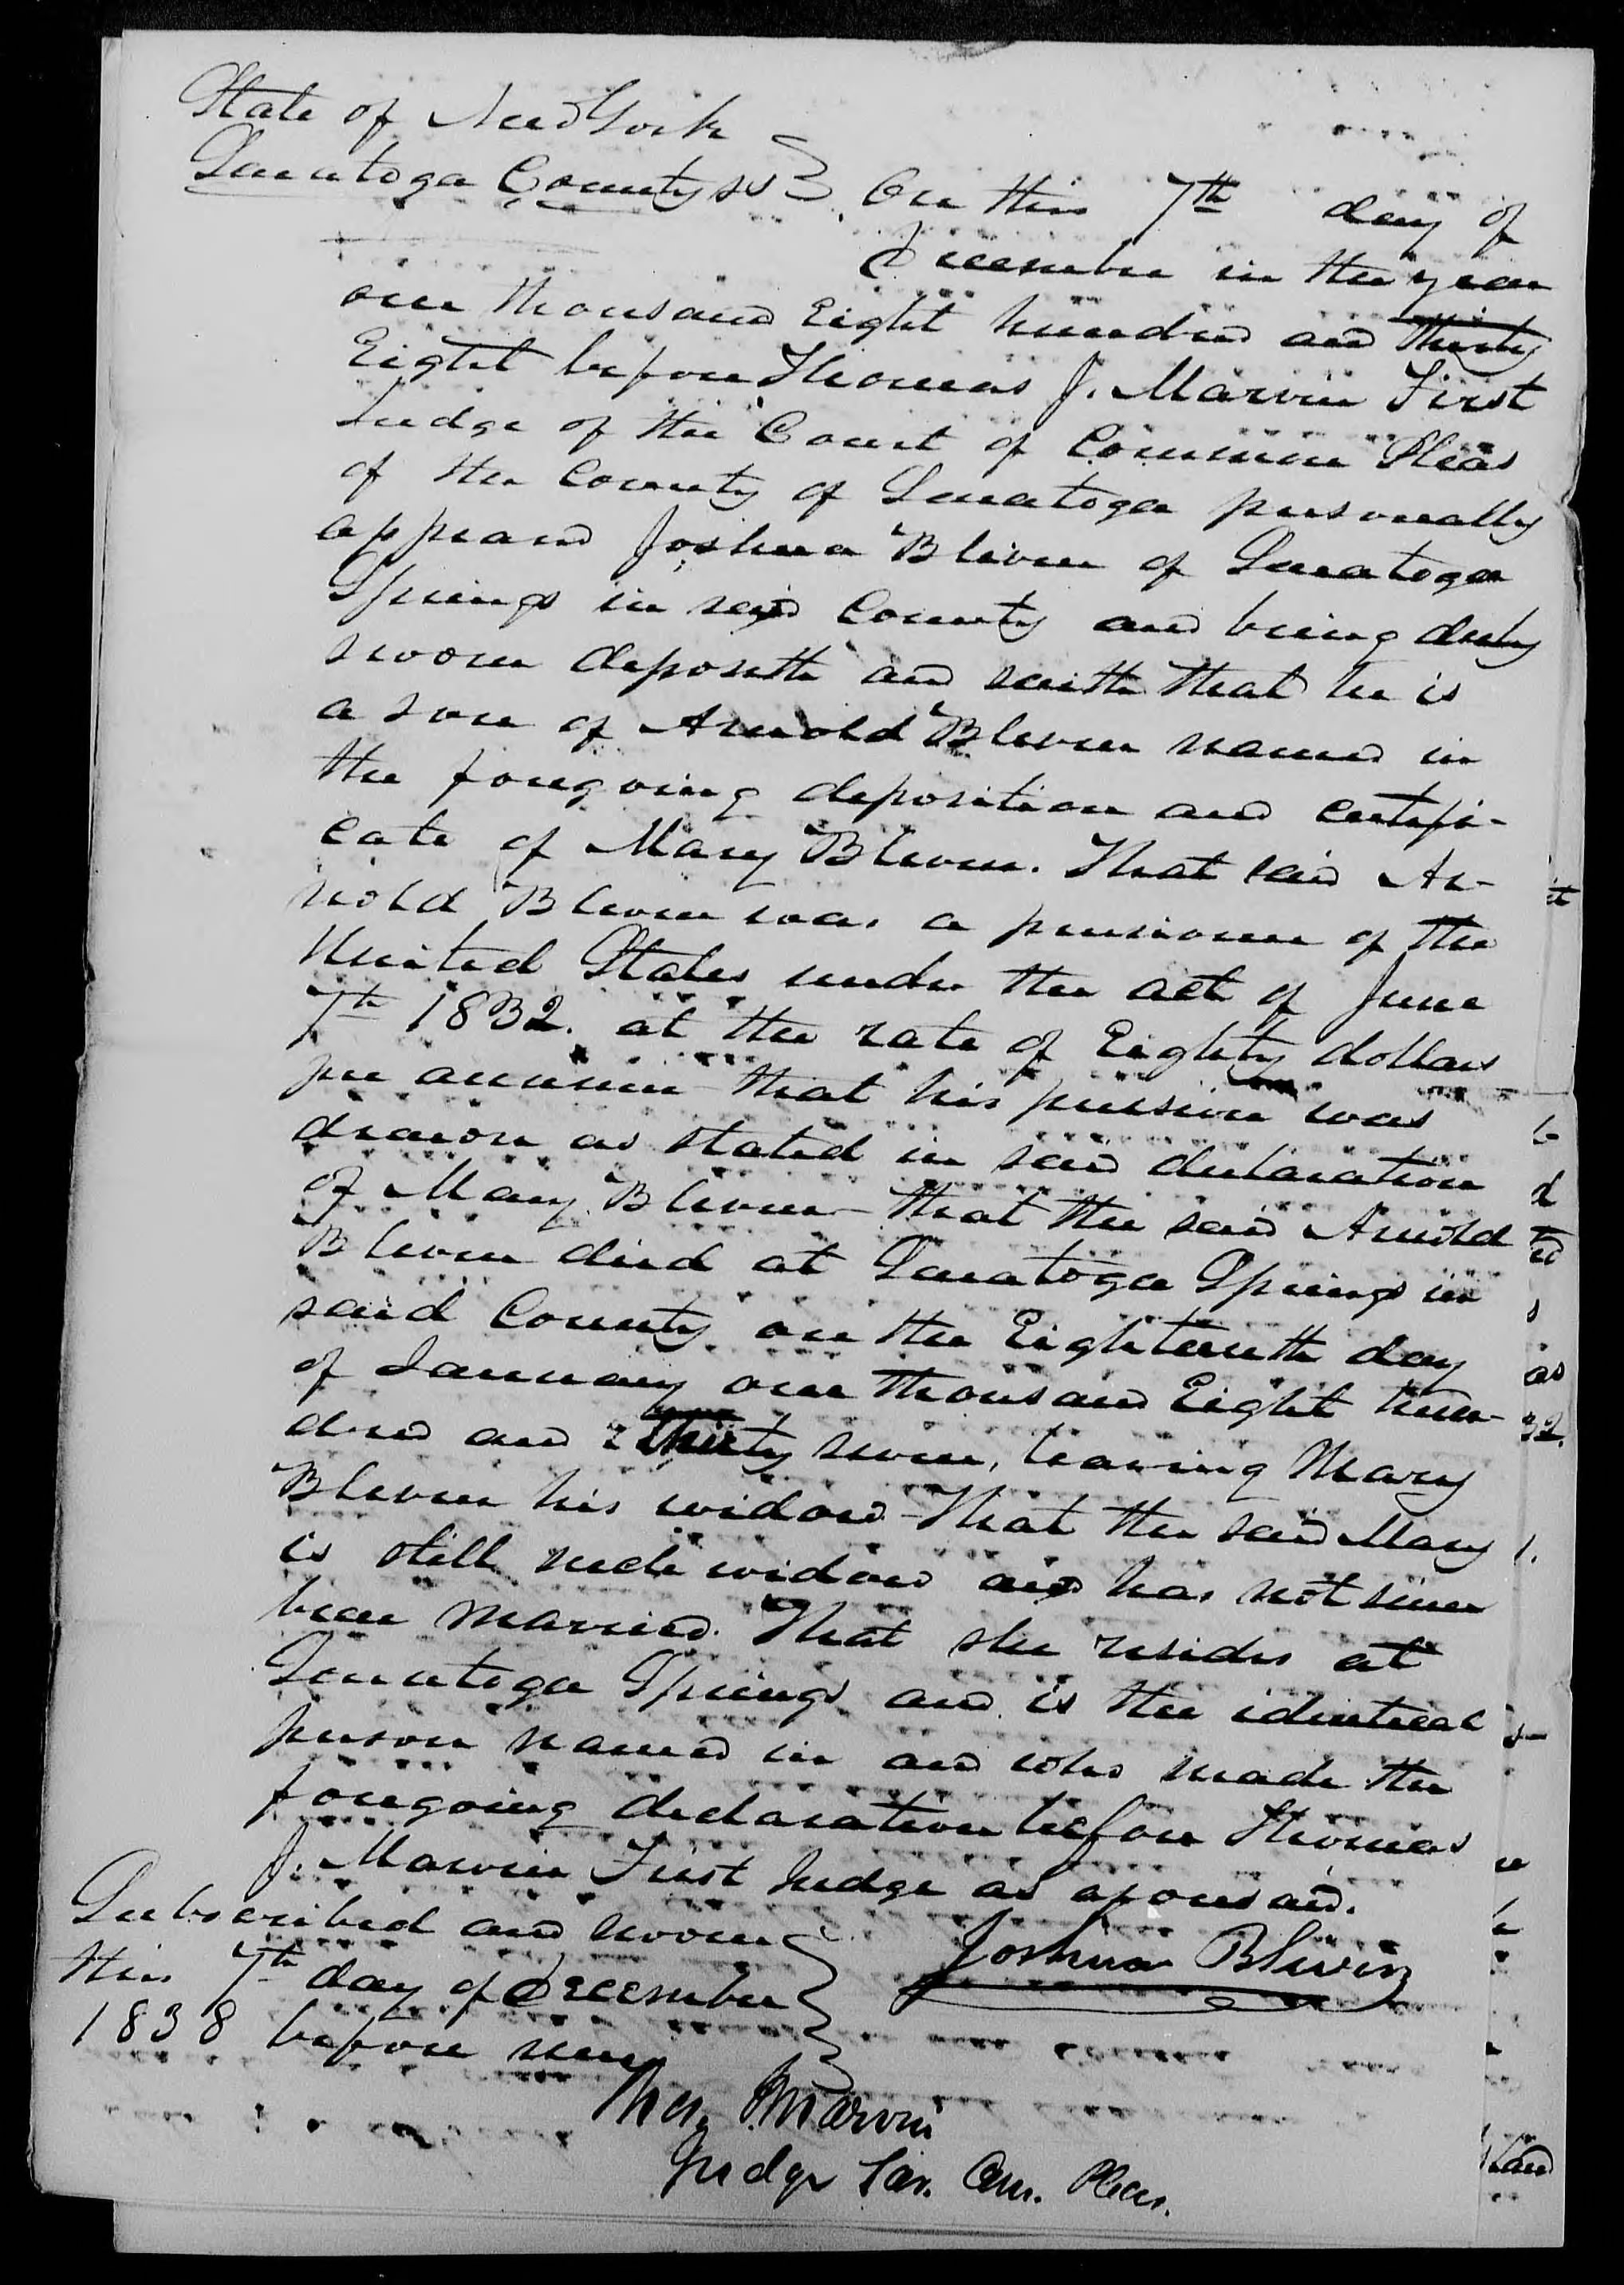 State of New York
Saratoga County ss } On this 7th day of
December in the year
one thousand Eight hundred and Thirty
Eight before Thomas J. Marvin First
Judge of the Court of Common Pleas
of the County of Saratoga personally
appeared Joshua Bliven of Saratoga
Springs in said County and being duly
sworn deposeth and saith that he is
a son of Arnold Bliven named in
the foregoing deposition and certifi-
cate of Mary Bliven. That said Ar-
nold Bliven was a pensioner of the
United States under the act of June
7th 1832. at the rate of Eighty dollars
per annum that his pension was
drawn as stated in said declaration
of Mary Bliven - that the said Arnold
Bliven died at Saratoga Springs in
said County on the Eighteenth day
of January one thousand Eight hun-
dred and thirty seven, leaving Mary
Bliven his widow - That the said Mary
is still such widow and has not since
been married. That she resides at
Saratoga Springs and is the identical
person named in and who made the
foregoing declaration before Thomas
J. Marvin First Judge as aforesaid.
Subscribed and sworn
this 7th day of December
1838 before me
Joshua Blivin
Thos. J. Marvin
Judge Sar. Com. Pleas.